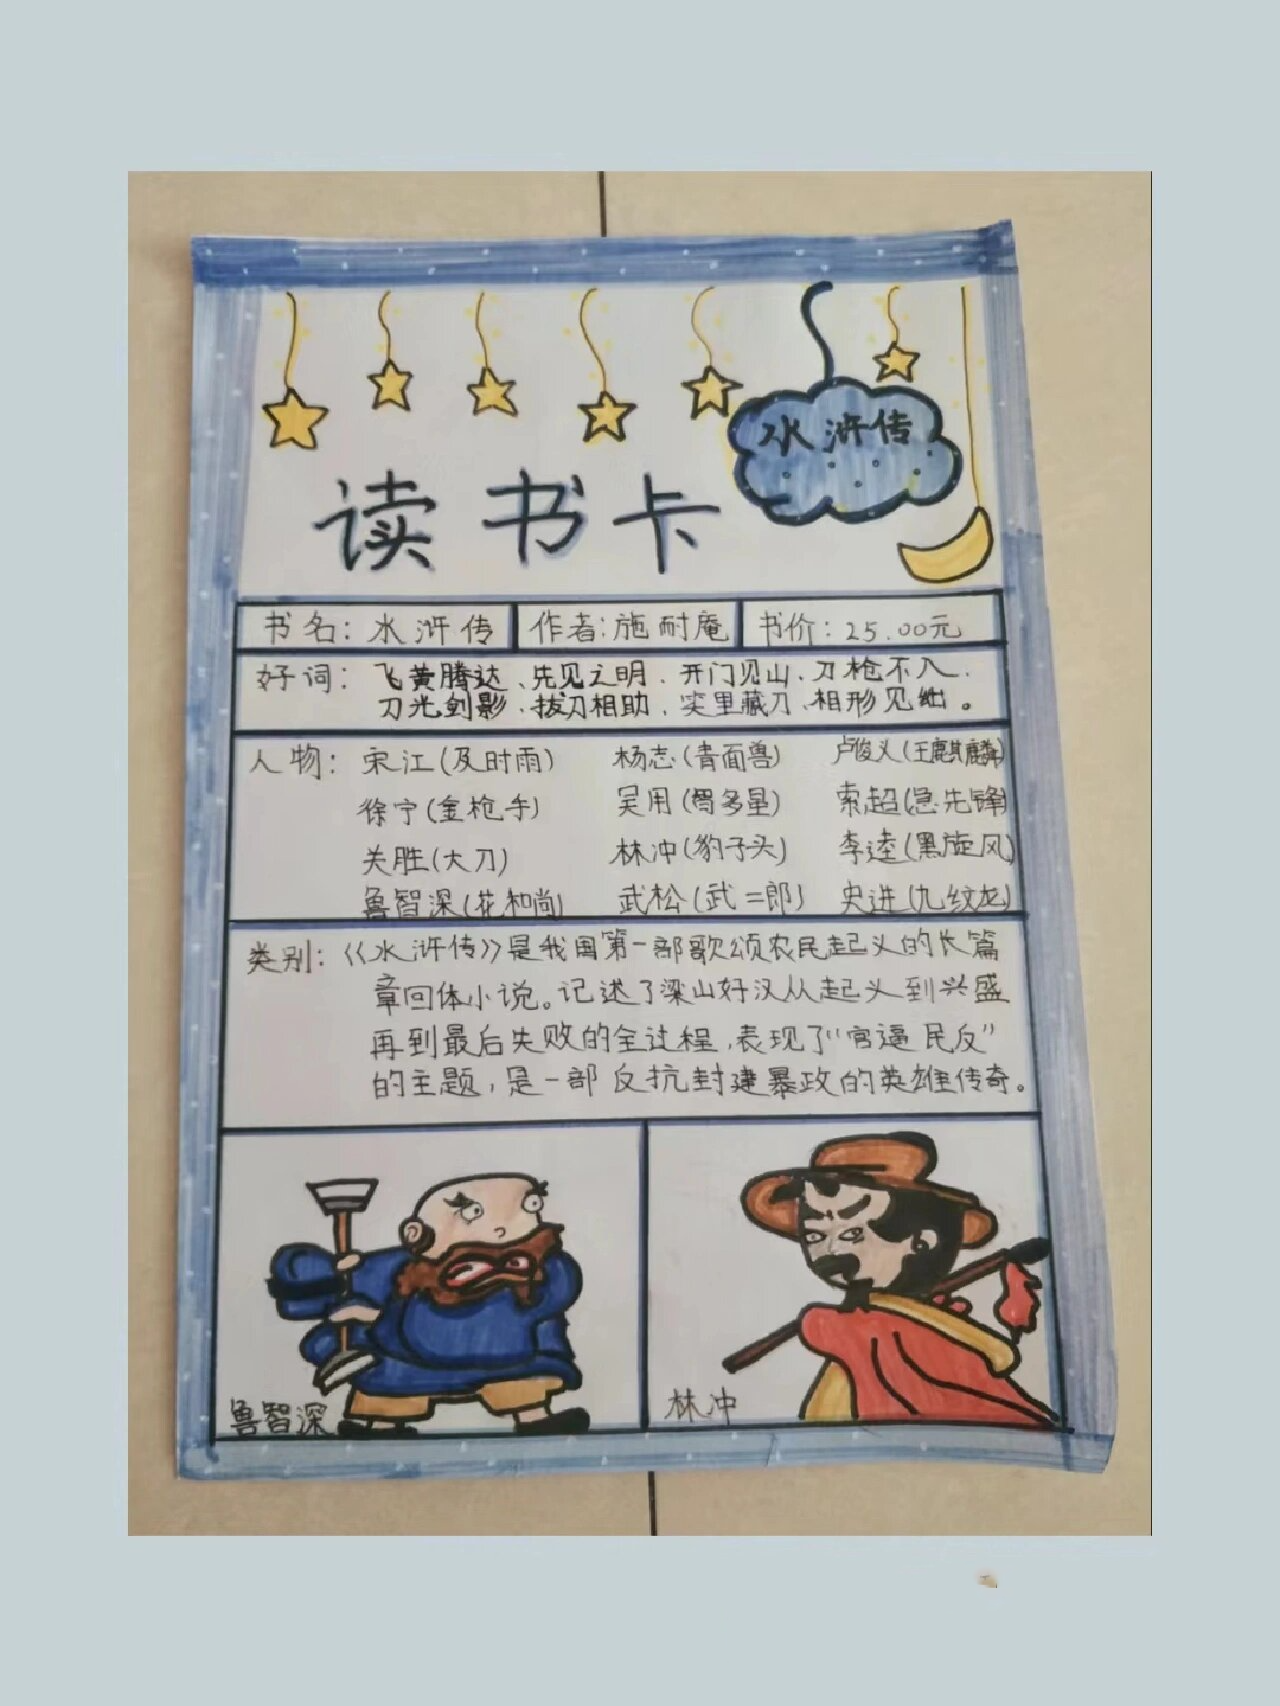 水浒传
读书卡
书名：水浒传 作者：施耐庵 书价：25.00元
好词：飞黄腾达、先见之明、开门见山、刀枪不入、
刀光剑影、拔刀相助、笑里藏刀、相形见绌。
人物：宋江（及时雨） 杨志（青面兽） 卢俊义（玉麒麟）
徐宁（金枪手） 吴用（智多星） 索超（急先锋）
关胜（大刀） 林冲（豹子头） 李逵（黑旋风）
鲁智深（花和尚） 武松（武二郎） 史进（九纹龙）
类别：《水浒传》是我国第一部歌颂农民起义的长篇
章回体小说。记述了梁山好汉从起义到兴盛
再到最后失败的全过程，表现了“官逼民反”
的主题，是一部反抗封建暴政的英雄传奇。
鲁智深
林冲